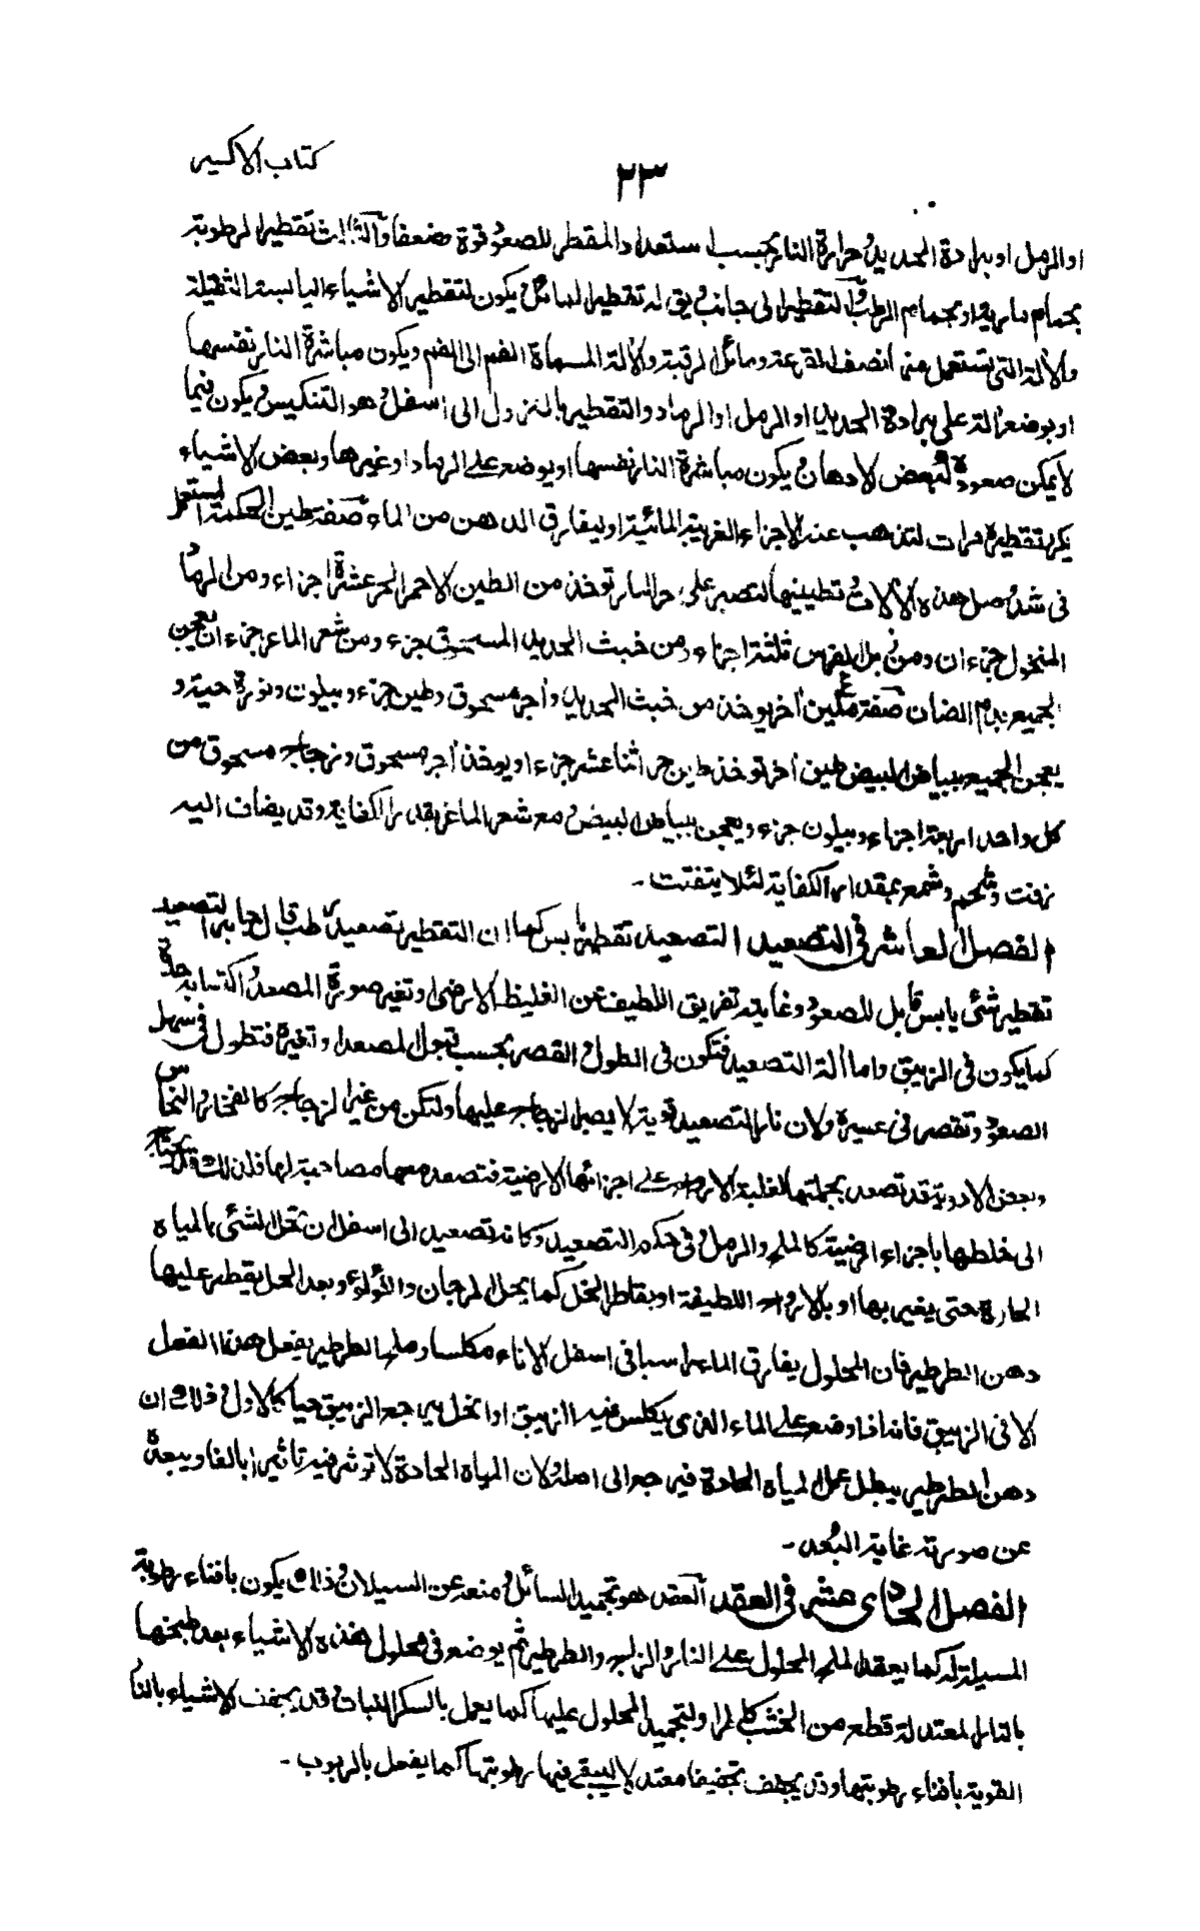 كتاب الاكسير
٢٣
او الرمل او برادة الحديد و حرارة النار بحسب استعداد المقطر للصعود قوة و ضعفا والثالث تقطير الرطوبة
بحمام مارية او بحمام الرطب و التقطير الى جانب و يق له تقطير المائل و يكون لتقطير الاشياء اليابسة الثقيلة
والآلة التى تستعمل عنه القرعة و مائل الرقبة والآلة المسماة الفم الى الفم ويكون مباشرة النار نفسها
او بوضع آلة على برادة الحديد او الرمل او الرماد والتقطير بالنزول الى اسفل و هو التنكيس و يكون فيما
لا يمكن صعوده لبعض الادهان و يكون مباشرة النار نفسها او يوضع على الرماد او غيرها وبعض الاشياء
يكرر تقطيرة مرات لتذهب عنه الاجزاء الغريبة المائية او ليفارق الدهن من الماء صفة طين الحكمة المستعمل
فى شد وصل هذه الآلات و تطيينها لتصبر على حر النار توخذ من الطين الاحمر الحر عشرة اجزاء ومن الرماد
المنخول جزءان ومن زبل الفرس ثلثة اجزاء ومن خبث الحديد المسحوق جزء ومن شعر الماعز جزءان يعجن
الجميع بدم الضان صفة طين آخر يوخذ من خبث الحديد و آجر مسحوق وطين جزء وبيلون ونورة حية و
يعجن الجميع ببياض البيض طين آخر توخذ طين حر اثنا عشر جزءا و يوخذ آجر مسحوق وزجاج مسحوق من
كل واحد اربعة اجزاء وبيلون جزء ويعجن ببياض البيض مع شعر الماعز بقدر الكفاية وقد يضاف اليه
زفت و شحم و شمع بمقدار الكفاية لئلا يتفتت -
الفصل العاشر فى التصعيد التصعيد تقطير يابس كما ان التقطير تصعيد رطب قال جابر التصعيد
تقطير شئ يابس قابل للصعود وغايته تفريق اللطيف عن الغليظ الارضى او تغير صورة المصعد و اكتسابه حدة
كما يكون فى الزيبق واما آلة التصعيد فتكون فى الطول و القصر بحسب قبول المصعد و تغيرة فتطول فى سهل
الصعود وتقصر فى عسيرة ولان نار التصعيد قوية لا يصبر الزجاج عليها ولتكن من غير الزجاج كالفخار والنحاس
وبعض الادوية قد تصعد بجملتها لغلبة الارواح على اجزائها الارضية فتصعد معها مصاحبة لها فلذلك قد يحتاج
الى خلطها باجزاء ارضية كالملح والرمل و فى حكم التصعيد وكانه تصعيد الى اسفل ان تحل الشئ بالمياه
الحارة حتى يغير بها او بالارواح اللطيفة او بقاطر الخل كما يحل المرجان واللؤلؤ و بعد الحل يقطر عليها
دهن الطرطير فان المحلول يفارق الماء راسبا فى اسفل الاناء مكلسا و ملح الطرطير يفعل هذا الفعل
الا فى الزيبق فانه اذا وضع على الماء الذى يكلس فيه الزيبق او انحل يراجع الزيبق حيا كالاول و ذلك ان
دهن الطرطير يبطل عمل المياه الحادة فيرجع الى اصله ولان المياه الحادة لا توثر فيه تاثيرا بالغا ويبعدة
عن صورته غاية البعد -
الفصل الحادى عشر فى العقد العقد هو تجميد السائل و منعه عن السيلان و ذلك يكون بافناء رطوبة
المسيلة له كما يعقد الملح المحلول على النار و الزاج والطرطير ثم يوضع فى محلول هذه الاشياء بعد طبخها
بالنار المعتدلة قطع من الخشب كلى المراد لتجميد المحلول عليها كما يعمل بالسكر النبات و قد يجفف الاشياء بالنار
القوية بافناء رطوبتها وقد يجفف تجفيفا معتدلا ليبقى فيها رطوبتها كما يفعل بالربوب -